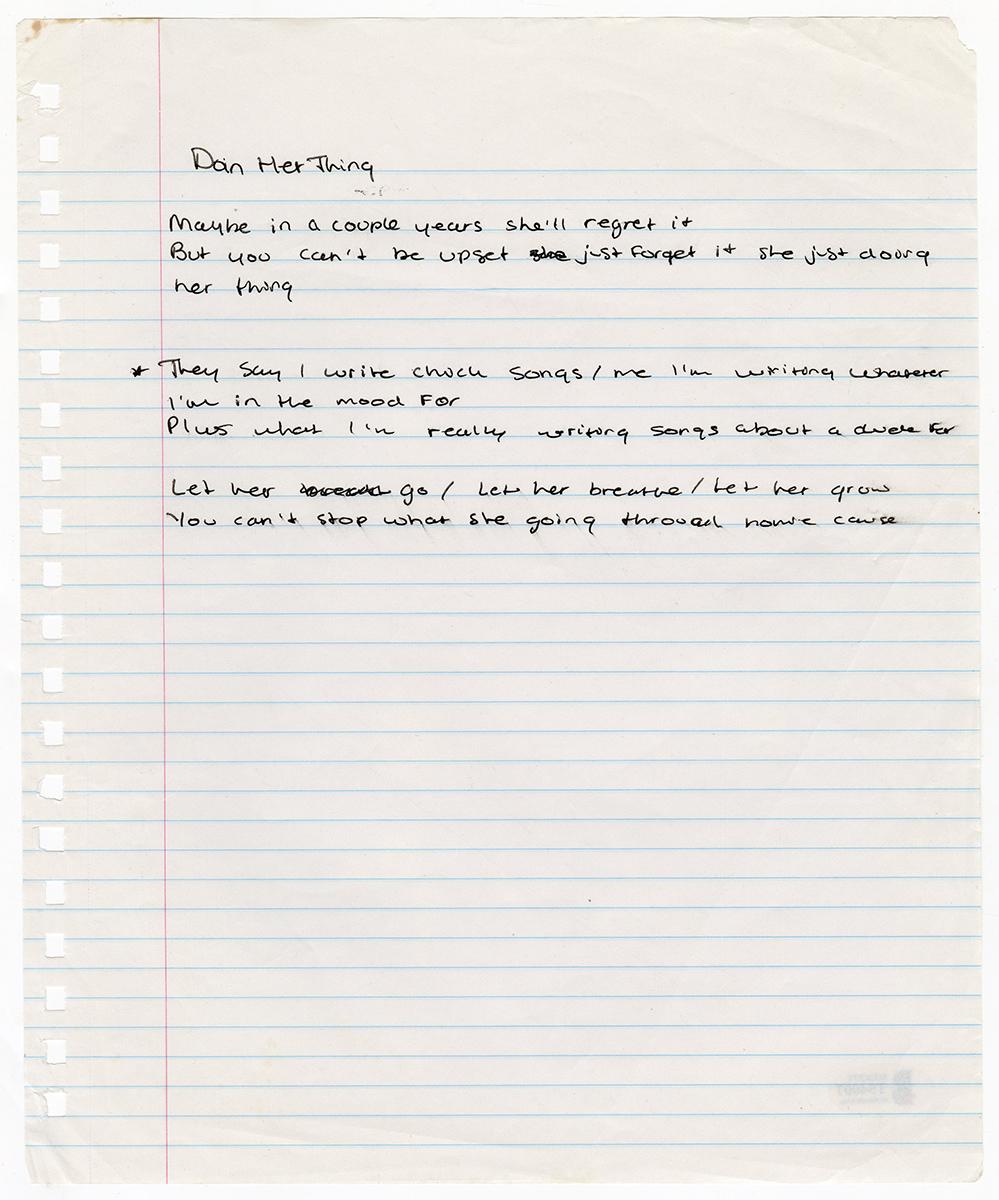 Doin Her Thing
Maybe in a couple years she'll regret it
But you can't be upset she just forget it she just doing
her thing
* They say I write chick songs / me I'm writing whatever
I'm in the mood For
Plus what I'm really writing songs about a dude For
Let her go / Let her breathe / Let her grow
You can't stop what she going through homie cause